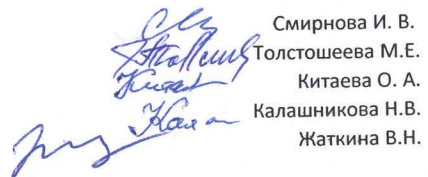 Смирнова И. В.
Толстошеева М.Е.
Китаева О. А.
Калашникова Н.В.
Жаткина В.Н.